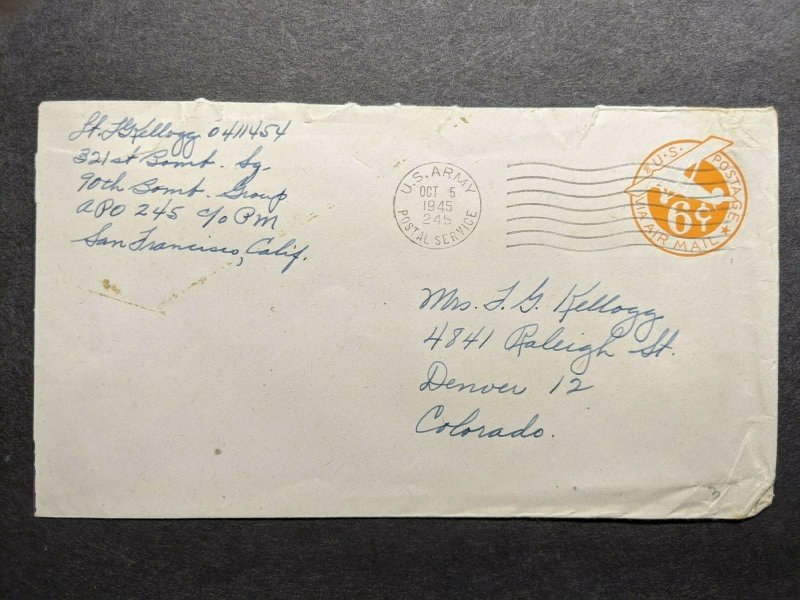 Lt. FG Kellogg 0411454
321st Bomb. Sq.
90th Bomb. Group
APO 245 c/o PM
San Francisco, Calif.
U.S. ARMY
OCT 5
1945
245
POSTAL SERVICE
U.S. POSTAGE
6¢
VIA AIR MAIL
Mrs. F. G. Kellogg
4841 Raleigh St.
Denver 12
Colorado.